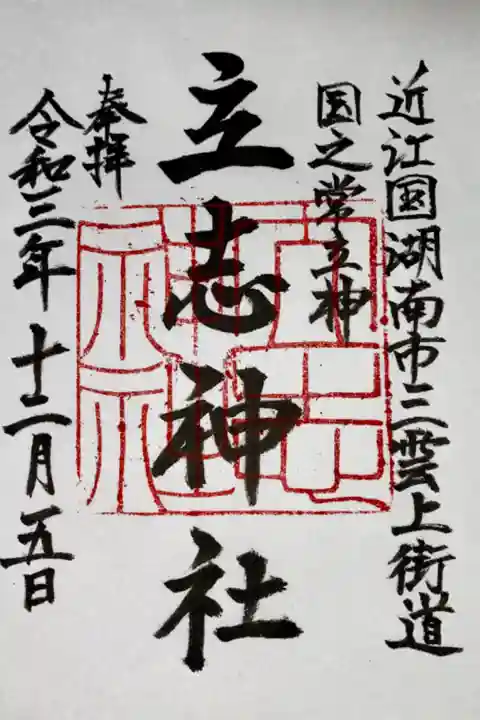 近江国湖南市三雲上街道
国之常立神
立志神社
奉拝
令和三年十二月五日